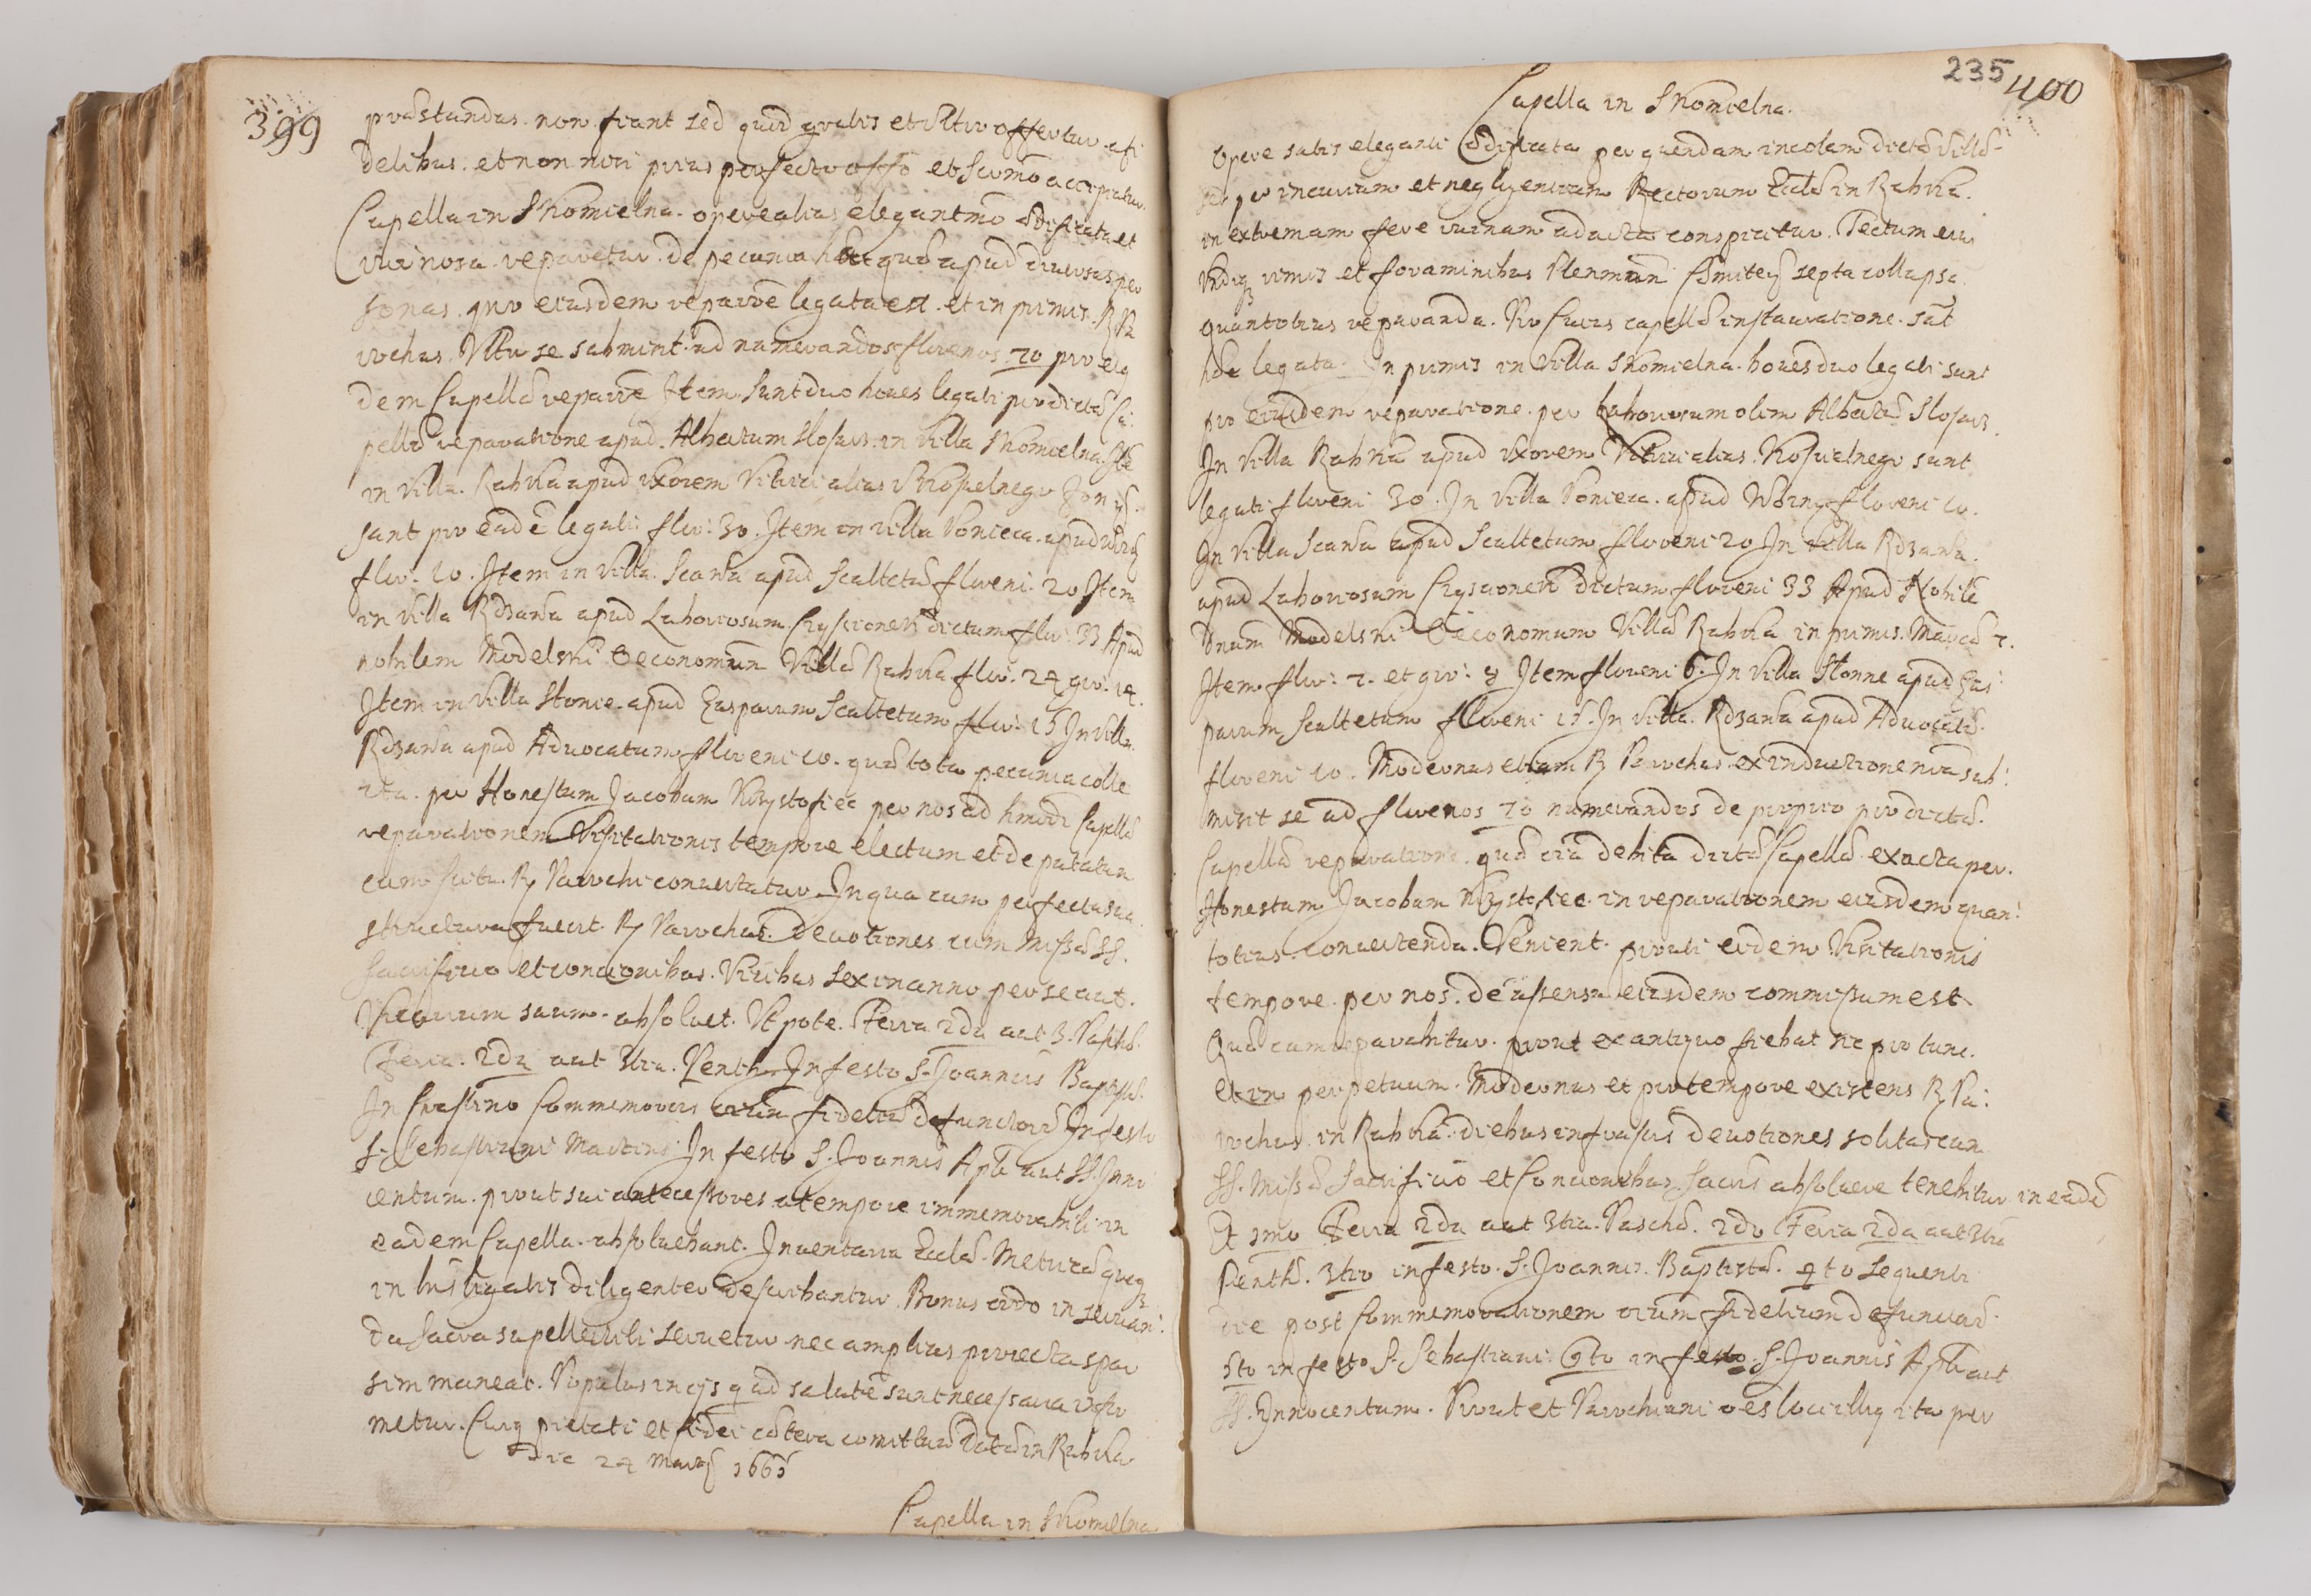 399
præstandas non fiant sed quid gratis et ultro offertur a fi
delibus. et non nisi prius perfecto offo et accipiatur.
Capella in Skomielna. opere alias elegantmo ædificata et
ruinosa reparetur. de pecunia hac quæ apud diversas per
sonas. pro eiusdem reparrne legata est. et in primis. R Pa
rochus. Ultro se submisit ad numerandos florenos 70 pro eiq
dem Capellæ reparrne Item sunt duo boves legati prodictæ Ca:
pellæ reparatione apud. Albertum Slosarz. in villa Skomielna.
in villa. Rabka apud Uxorem Vitrici alias
sunt pro eadē legati flor: 30. Item in villa Ponieca. apud
flor. 10. Item in villa. Scarsa apud Scultetū floreni. 20 Item
in villa Rdzawka apud Laboriosum. dictum flor: 33 Apud
nobilem Modelski Oeconomum Villæ Rabka flor. 24 gro: 14.
Item in villa Slonne apud Gasparum Scultetum flor: 15 In villa
Rdzawka apud Advocatum floreni 10. quæ tota pecunia colle
cta. per Honestum Jacobum Krzysztofiec per nos ad hmodi Capellæ
reparationem Visitationis tempore electum et deputatum
cum scitu. R Parochi convertatur In qua cum perfecta sua
structura fuerit. R Parochus. Devotiones cum Missæ SS.
Sacrificio et concionibus. Vicibus sex in anno per se aut.
Vicarium suum absolvet. Utpote. Feria 2da aut 3. Paschæ.
Feria. 2da aut 3tia. Penth. In festo S. Joannis Baptistæ.
In Crastino Commemoris oium fidelium defunctorū In festo
S. Sebastiani Martiris. In festo S. Joannis Apli aut SS. Inno
centum. prout sui antecessores a tempore immemorabili in
eadem Capella absolvebant. Inventaria Ecclæ. Metricæ quoq
in lris ligatis diligenter describantur. Bonus ordo in servan:
da sacra supellectili servetur nec amplius proiecta spar
sim maneat. Populus in ijs q ad salutē sunt necessaria infor
metur. Cuiq pietati et fidei cætera comittund Datū in Rabka
Die 24 Martij 1665
Capella in Skomielna
235
400
Capella in Skomielna.
Opere satis eleganti Ædificata per quendam incolam dictæ Villæ
sed per incuriam et negligentiam Rectorum Ecclæ in Rabka.
in extremam fere ruinam adacta conspicitur. Tectum eius
Undiq rimis et foraminibus Plenum Cæmiterij septa collapsa
quantotius reparanda. Pro cuius capellæ instauratione. sūt
hæc legata. In primis in Villa Skomielna. boves duo legati sunt
pro eiusdem reparatione. per Laboriosum olim Albertū Slosarz.
In Villa Rabka apud Uxorem Vitrici alias. sunt
legati floreni 30. In Villa Poniecz. apud floreni 10.
In Villa Scarsa apud Scultetum floreni 20 In Villa Rdzawka.
apud Laboriosum dictum floreni 33 Apud Nobilē
Dnum Modelski Oeconomum Villæ Rabka in primis. Marcæ 7.
Item flor: 7. et gro: 8 Item floreni 6. In villa Slonne apud Gas:
parum Scultetum floreni 15. In Villa. Rdzawka apud Advocatū.
floreni 10. Modernus etiam R Parochus. ex inductione nra sub:
misit se ad florenos 70 numerandos de proprio pro dictæ.
Capellæ reparatione. quæ oia debita dictæ Capellæ. exacta per.
Honestum Jacobum Krzysztofiec. in reparationem eiusdem quan:
totius. convertenda. Venient. prouti eidem Visitationis
tempore. per nos. de assensu eiusdem commissum est.
Quæ cum reparabitur. prout ex antiquo fiebat sic pro tunc.
et in perpetuum. Modernus et pro tempore existens R Pa:
rochus. in Rabka. diebus infrascris devotiones solitas cum
SS. Missæ Sacrificio et Concionibus Sacris absolvere tenebitur in eadē
Et 1mo Feria 2da aut 3tia. Paschæ. 2do Feria 2da aut 3tia
Penth. 3tio in festo. S. Joannis. Baptistæ. 4to sequenti
die post Commemorationem oium fidelium defunctorū.
5to in festo S. Sebastiani. 6to in festo. S. Joannis Apli aut
SS. Innocentum. Prout et Parochiani oes loci illiq ita per